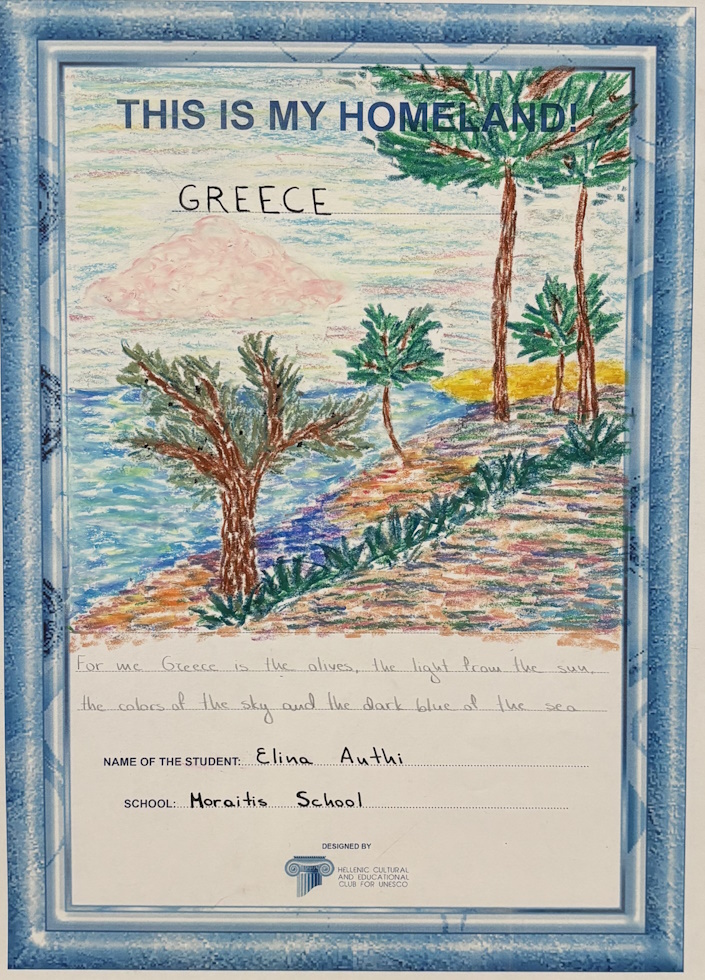 THIS IS MY HOMELAND!
GREECE
For me Greece is the olives, the light from the sun,
the colors of the sky and the dark blue of the sea
NAME OF THE STUDENT: Elina Authi
SCHOOL: Moraitis School
DESIGNED BY
HELLENIC CULTURAL
AND EDUCATIONAL
CLUB FOR UNESCO